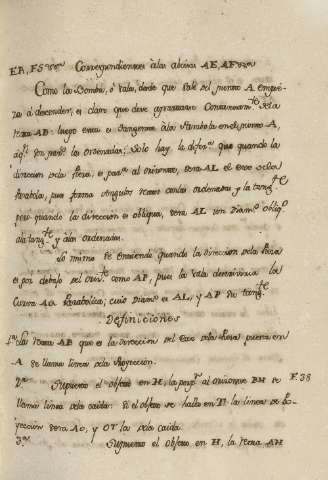 ER, FS &c. Correspondientes à las abcisas AE, AF &c.
Como la Bomba, ò bala, desde que sale del punto A empie-
za à descender, es claro que deve apartarse continuamte. dela
Recta AB: luego esta es tangente à la Parabola en el punto A,
à qe. son parals. las ordenadas; solo hay la difera. que quando la
dirección dela pieza, es para. al orizonte, será AL el exe dela
Parabola, pues forma angulos rectos con las ordenadas y la tangte.
pero quando la dirección es obliqua, será AL un Diamo. obliqo.
ala tangte. y à las ordenadas.
Lo mismo se entiende quando la dirección dela Pieza
es por debajo del orizte. como AP, pues la bala describirá la
Curva AO Parabolica; cuio Diamo. es AL, y AP su tangte.
Definiciones
1a. La recta AB que es la dirección del exe dela Pieza puesta en
A se llama linea dela Proyección.
2a. Supuesto el objeto en H, la perpr. al orizonte BH se F. 38
llama linea dela caida: si el objeto se halla en T la linea de Pro-
yección será AO, y OT la dela caida.
3a. Supuesto el objeto en H, la Recta AH